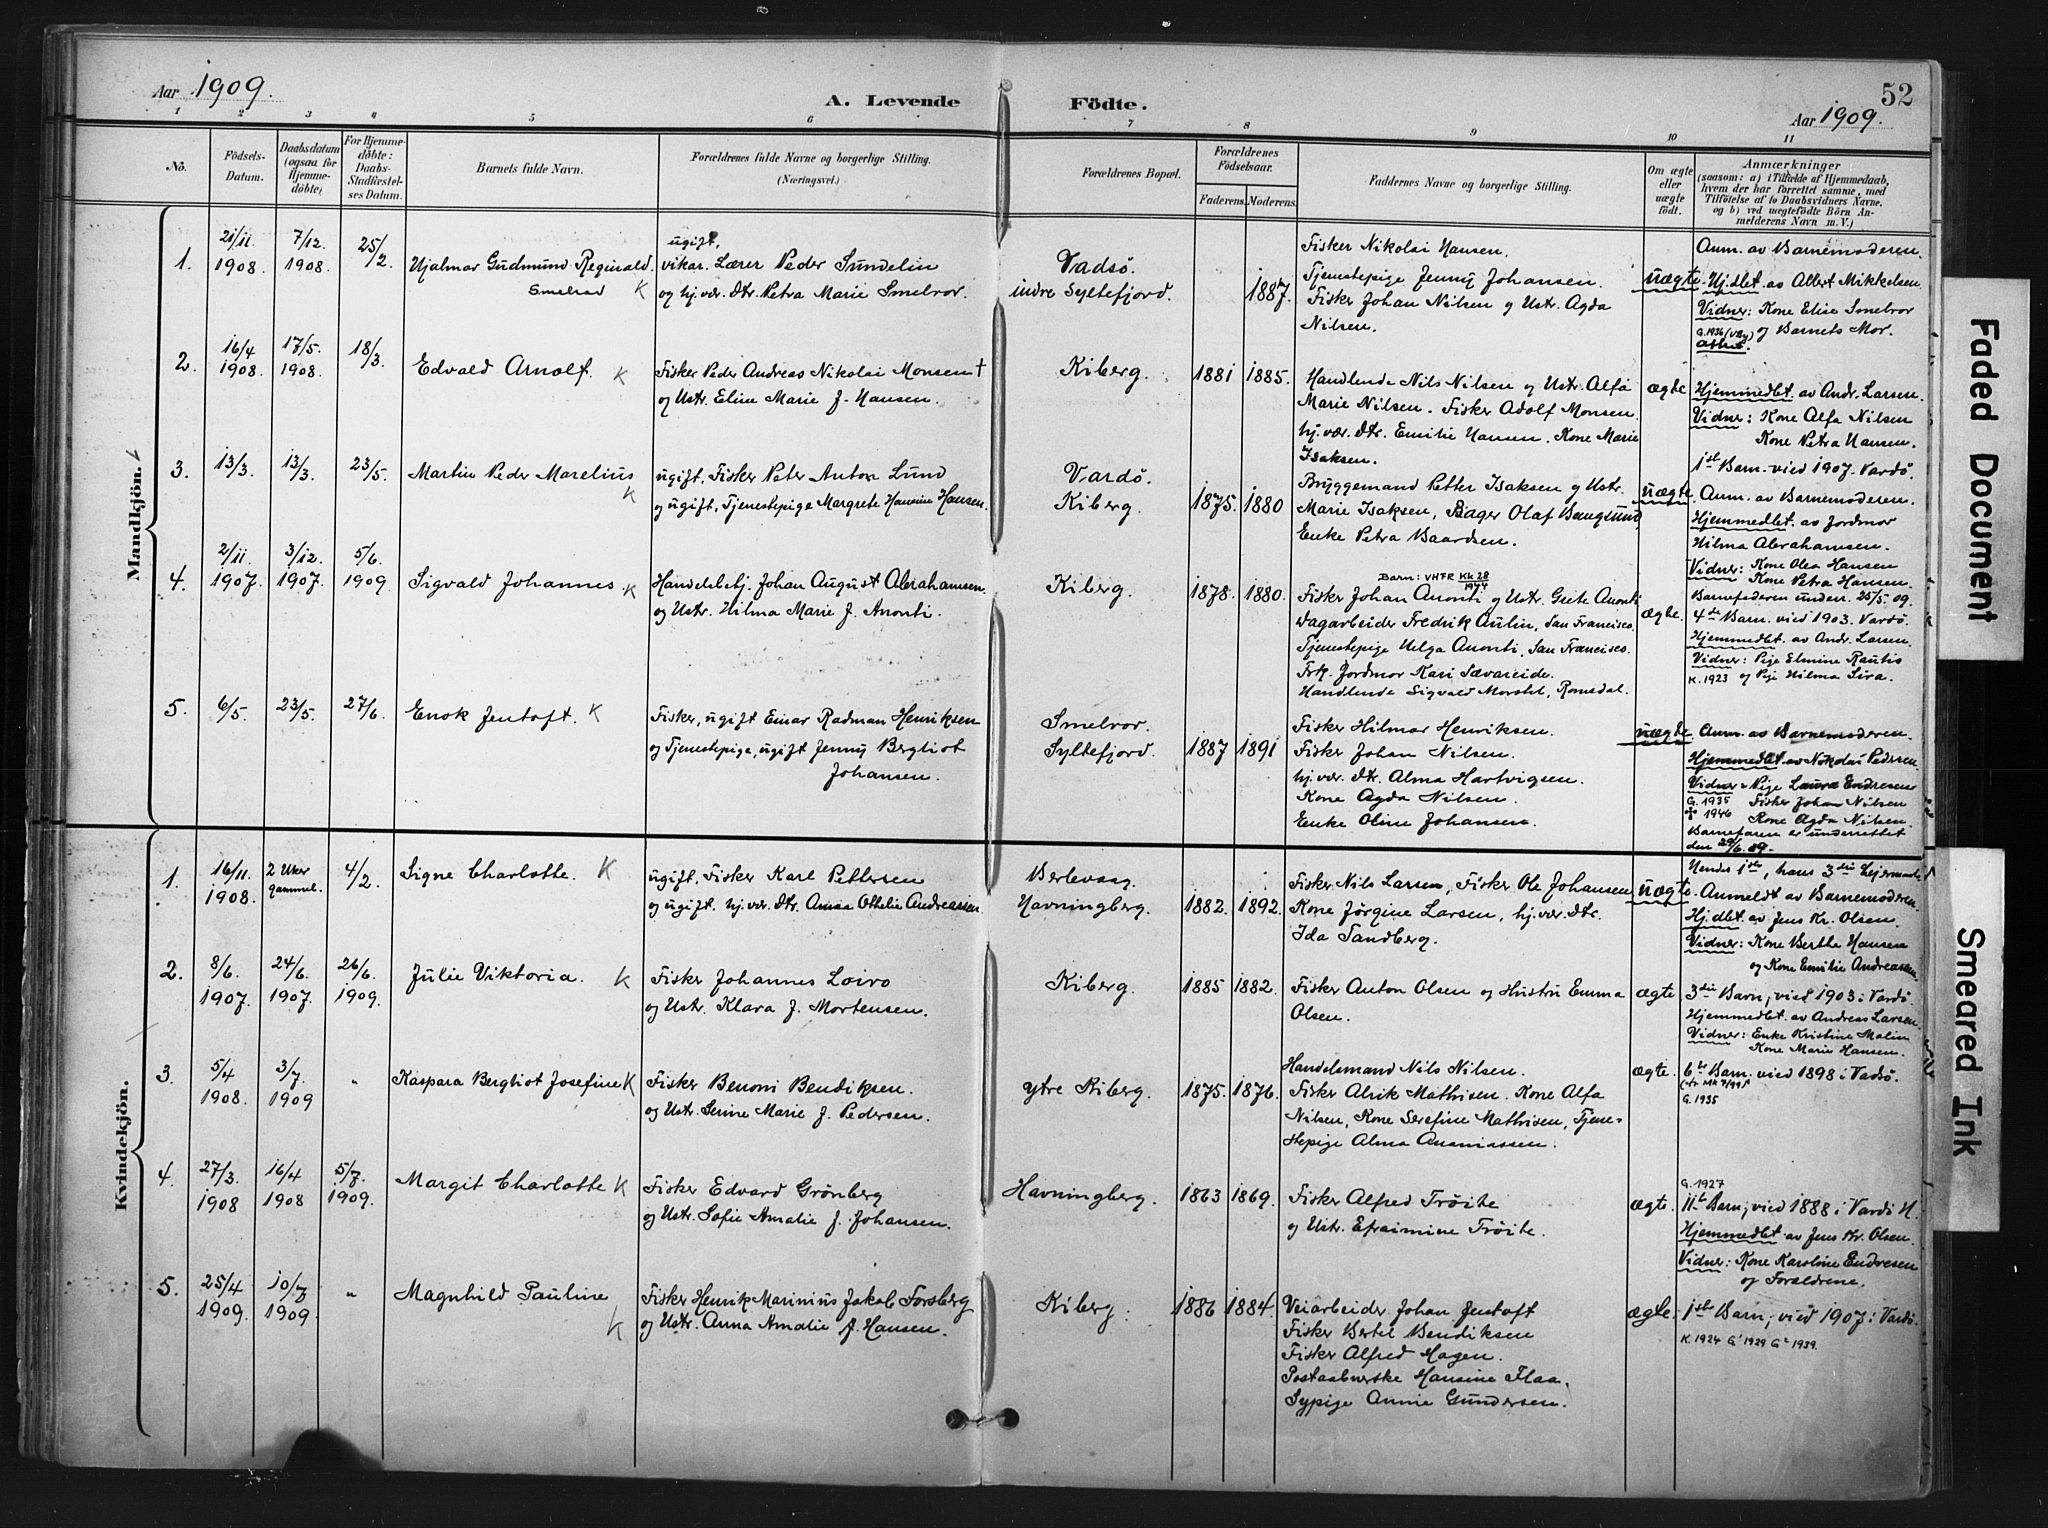 Aar 1909.
A. Levende Födte.
52
Aar 1909.
1 2 3 4 5 6 7 8 9 10 11
No.
Födsels-Datum.
Daabsdatum (ogsaa for Hjemmedöbte)
For Hjemmedöbte: Daabs-Stadfæstelses Datum.
Barnets fulde Navn.
Forældrenes fulde Navne og borgerlige Stilling. (Næringsvei.)
Forældrenes Bopæl.
Forældrenes Födselsaar.
Faderens. Moderens.
Faddernes Navne og borgerlige Stilling.
Om ægte eller uægte födt.
Anmærkninger (saasom: a) i Tilfælde af Hjemmedaab, hvem der har forrettet samme, med Tilföielse af to Daabsvidners Navne. og b) ved uægtefödte Börn Anmelderens Navn m. V.)
Mandkjön.
1. 21/11 1908. 7/12. 1908. 25/2. Hjalmar Gudmund Reginald. Smelrod K
ugift, vikar. Lærer Peder Sundelin
og hj.vær. Dtr. Petra Marie Smelror.
Vadsö.
indre Syltefjord. 1887.
Fisker Nikolai Hansen.
Tjenestepige Jenny Johansen.
Fisker Johan Nilsen og Ustr. Agda
Nilsen.
uægte.
Anm. av Barnemoderen.
Hj.dbt. av Albert Mikkelsen.
Vidner: Kone Elise Smelror
og Barnets Mor.
2. 16/4 1908. 17/5. 1908. 18/3. Edvald Arnolf. K
Fisker Peder Andreas Nikolai Monsen +
og Ustr. Eline Marie f. Hansen.
Kiberg. 1881 1885.
Handlende Nils Nilsen og Ustr. Alfa
Marie Nilsen. Fisker Adolf Monsen.
hj.vær. Dtr. Emilie Hansen. Kone Marie
Isaksen.
ægte
Hjemmedbt. av Andr. Larsen.
Vidner: Kone Alfa Nilsen
Kone Petra Hansen.
1ste Barn. vied 1907. Vardö.
3. 13/3. 13/3. 23/5. Martin Peder Marelius K
ugift, Fisker Peter Anton Lund
og ugift, Tjenestepige Margrete Hansine Hansen.
Vardö.
Kiberg. 1875. 1880
Bryggemand Petter Isaksen og Ustr.
Marie Isaksen, Bager Olaf Bangsund
Enke Petra Baardsen.
uægte
Anm. av Barnemoderen.
Hjemmedbt. av Jordmor
Hilma Abrahamsen.
Vidner: Kone Olea Hansen
Kone Petra Hansen.
Barnefaderen underr. 25/5. 09.
4. 2/11. 1907. 3/12. 1907. 5/6. 1909 Sigvald Johannes K
Handelsbj. Johan August Abrahamsen.
og Ustr. Hilma Marie f. Anonti.
Kiberg. 1878. 1880.
Barn: VHFR Kk 28 1944
Fisker Johan Anonti og Ustr. Grete Anonti
Dagarbeider Fredrik Aulin, San Francisco.
Tjenestepige Helga Anonti, San Francisco.
Frk. Jordmor Kari Sævareide.
Handlende Sigvald Morstöl, Romsdal.
ægte.
4de Barn. vied 1903. Vardö.
Hjemmedbt. av Andr. Larsen.
Vidner: Pige Elmine Rautio
K. 1923 og Pige Hilma Sira.
5. 6/5. 23/5. 27/6. Enok Jentoft. K
Fisker, ugift Einar Radman Henriksen
og Tjenestepige, ugift Jenny Bergliot
Johansen.
Smelror.
Syltefjord. 1887 1891
Fisker Hilmar Henriksen.
Fisker Johan Nilsen.
hj.vær. Dtr. Alma Hartvigsen.
Kone Agda Nilsen.
Enke Oline Johansen.
uægte.
Anm. av Barnemoderen.
Hjemmedbt. av Nikolai Pedersen.
Vidner: Pige Laura Endresen
G. 1935 Fisker Johan Nilsen
1946 Kone Agda Nilsen.
Barnefaren er underrettet
den 29/6. 09.
Kvindekjön.
1. 16/11. 1908. 2 Uker gammel. 4/2. Signe Charlotte. K
ugift, Fisker Karl Pettersen
og ugift. hj.vær. Dtr. Anna Othelie Andreassen.
Berlevaag.
Havningberg. 1882. 1892.
Fisker Nils Larsen, Fisker Ole Johansen
Kone Jörgine Larsen, hj.vær. Dtr.
Ida Sandberg.
uægte.
Hendes 1ste, hans 3die Leiermaal
Anmeldt av Barnemoderen.
Hj.dbt. av Jens Kr. Olsen.
Vidner: Kone Berthe Hansen
og Kone Emilie Andreassen.
2. 8/6. 1907. 24/6. 1907. 26/6. 1909. Julie Viktoria. K
Fisker Johannes Loivo
og Ustr. Klara f. Mortensen.
Kiberg. 1885 1882.
Fisker Anton Olsen og Hustru Emma
Olsen.
ægte
3die Barn, vied 1903 i Vardö.
Hjemmedbt. av Andreas Larsen.
Vidner: Enke Kristine Malin
Kone Marie Hansen.
3. 5/4 1908. 3/7. 1909 " Kaspara Bergliot Josefine K
Fisker Benoni Bendiksen.
og Ustr. Serine Marie f. Pedersen.
Ytre Kiberg. 1875. 1876.
Handelsmand Nils Nilsen.
Fisker Alrik Mathisen. Kone Alfa
Nilsen, Kone Serefine Mathisen, Tjene-
stepige Alma Ananiassen.
ægte.
6te Barn. vied 1898 i Vadsö.
G. 1935
4. 27/3. 1908 16/4 1908 5/7. 1909. Margit Charlotte K
Fisker Edvard Grönberg
og Ustr. Sofie Amalie f. Johansen.
Havningberg. 1863 1869.
Fisker Alfred Tröite
og Ustr. Efraimine Tröite.
ægte.
G. 1927
11te Barn, vied 1888 i Vardö H.
Hjemmedbt av Jens Kr. Olsen.
Vidner: Kone Karoline Endresen
og Forældrene.
5. 25/4 1909. 10/7 1909 " Magnhild Pauline K
Fisker Henrik Marinius Jakob Forsberg
og Ustr. Anna Amalie f. Hansen.
Kiberg. 1886 1884.
Veiarbeider Johan Jentoft
Fisker Bertel Bendiksen
Fisker Alfred Hagen.
Postaabnerske Hansine Flaa.
Sypige Annie Gundersen.
ægte.
1ste Barn, vied 1907 i Vardö.
K. 1924 G¹ 1929 G² 1939.
Faded Document
Smeared Ink